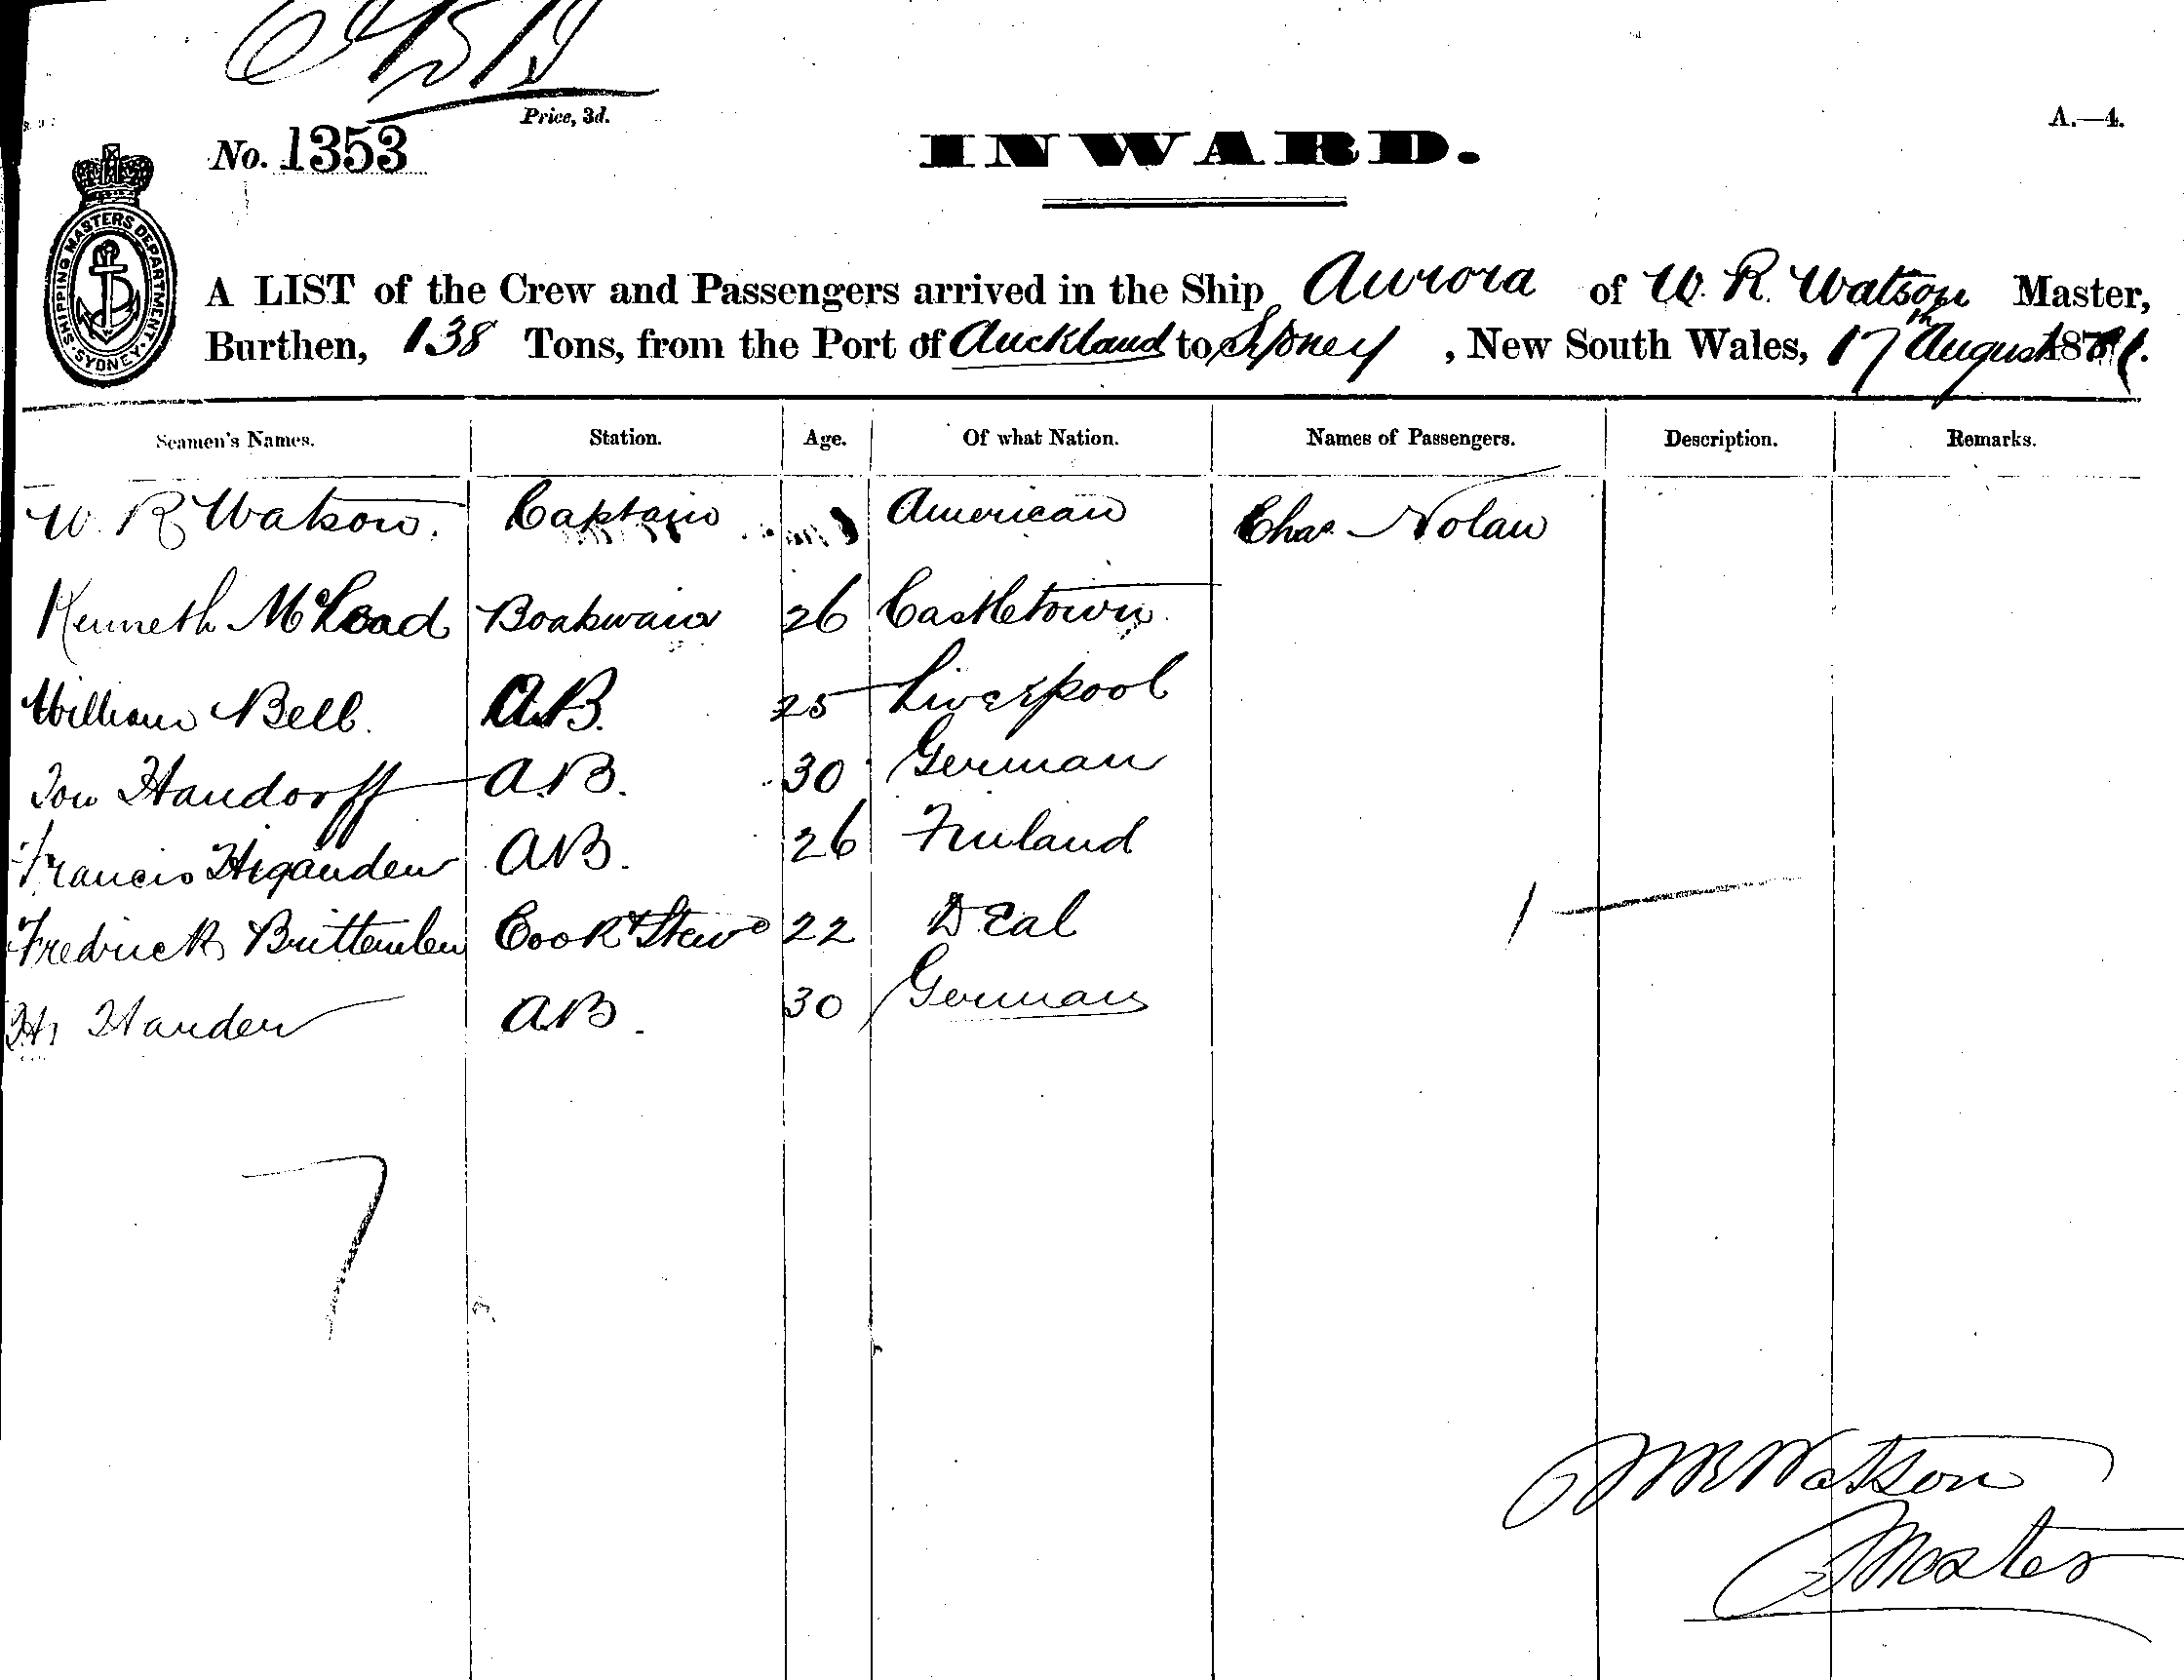 Price, 3d.
A.—4.
No. 1353
INWARD.
SHIPPING MASTERS DEPARTMENT. SYDNEY.
A LIST of the Crew and Passengers arrived in the Ship Aurora of W. R. Watson Master,
Burthen, 138 Tons, from the Port of Auckland to Sydney, New South Wales, 17th August 18
Seamen's Names. Station. Age. Of what Nation. Names of Passengers. Description. Remarks.
W. R Watson. Captain American Chas. Nolan
Kenneth McLoad Boatswain 26 Castletown
William Bell. A.B. 25 Liverpool
Handorff A.B. 30 German
Francis A.B. 26 Finland
Fredrick Cook & Stewd 22 Deal
1
A.B. 30 German
7
Watson
Master